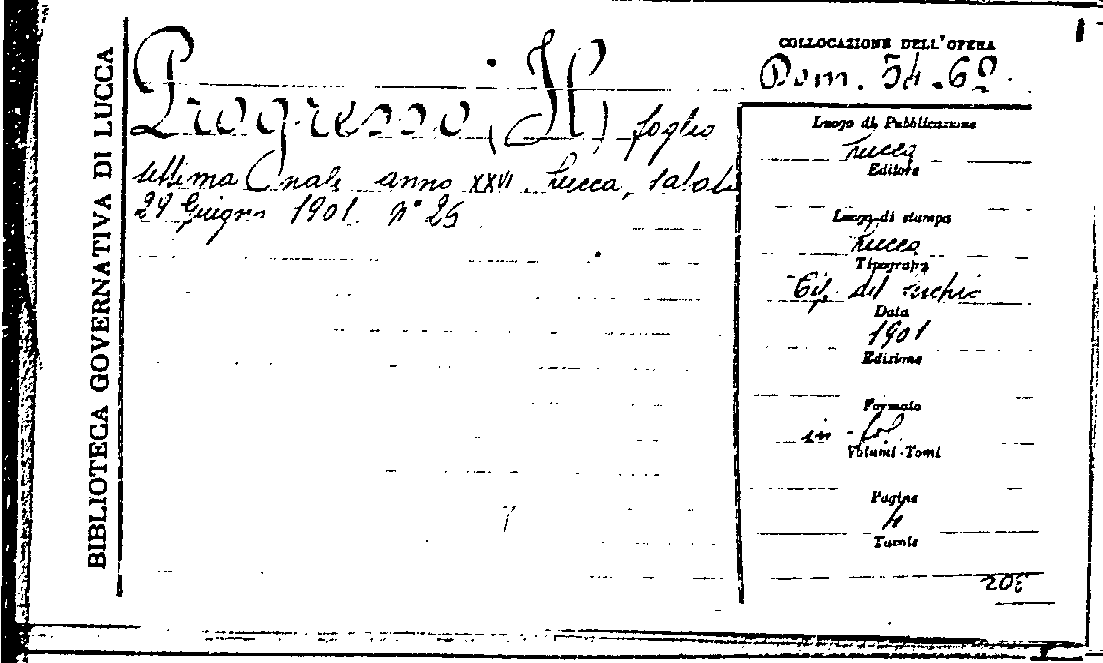 BIBLIOTECA GOVERNATIVA DI LUCCA
Progresso (Il) foglio
settimanale anno XXVI. Lucca, sabato
29 Giugno 1901. N° 26
COLLOCAZIONE DELL'OPERA
Dom. 54.62.
Luogo di Pubblicazione
Lucca
Editore
Luogo di stampa
Lucca
Tipografo
Tip. del Serchio
Data
1901
Edizione
Formato
in-fol
Volumi-Tomi
Pagine
4
Tavole